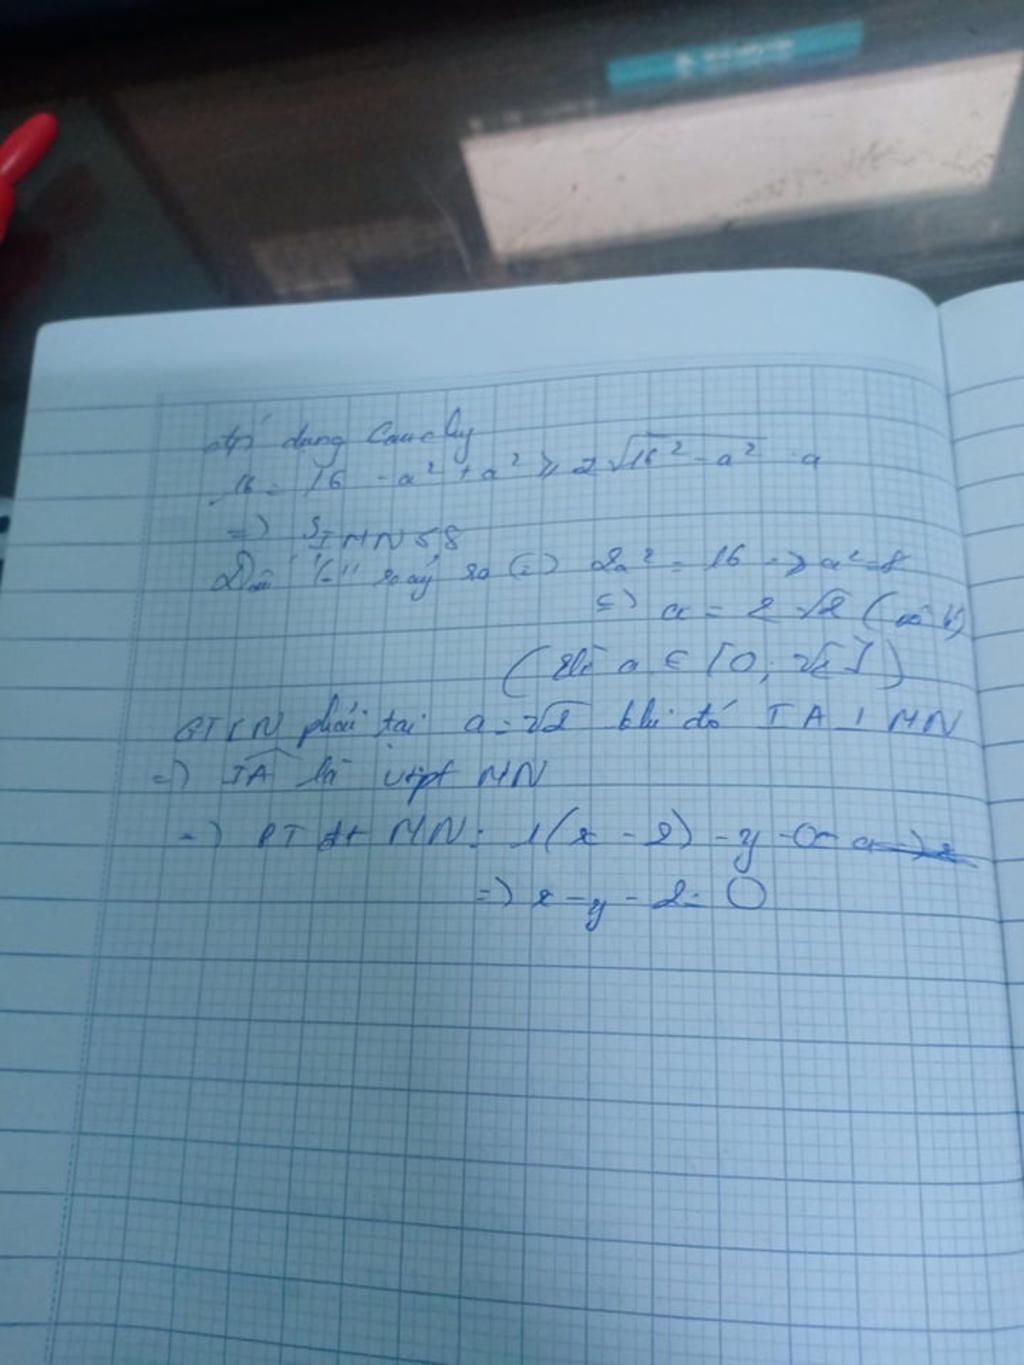 Áp dụng Cauchy
16 = 16 - a² + a² ≥ 2√16² - a² . a
=) S IMN ≤ 8
Dấu "=" xảy ra (=) 2a² = 16 => a² = 8
(=) a = 2√2 (
a ∈ [0; √2])
GTLN phải tại a = √2 khi đó IA ⊥ MN
=) IA là vtpt MN
=) PT đt MN: 1(x - 2) - y = 0
=) x - y - 2 = 0